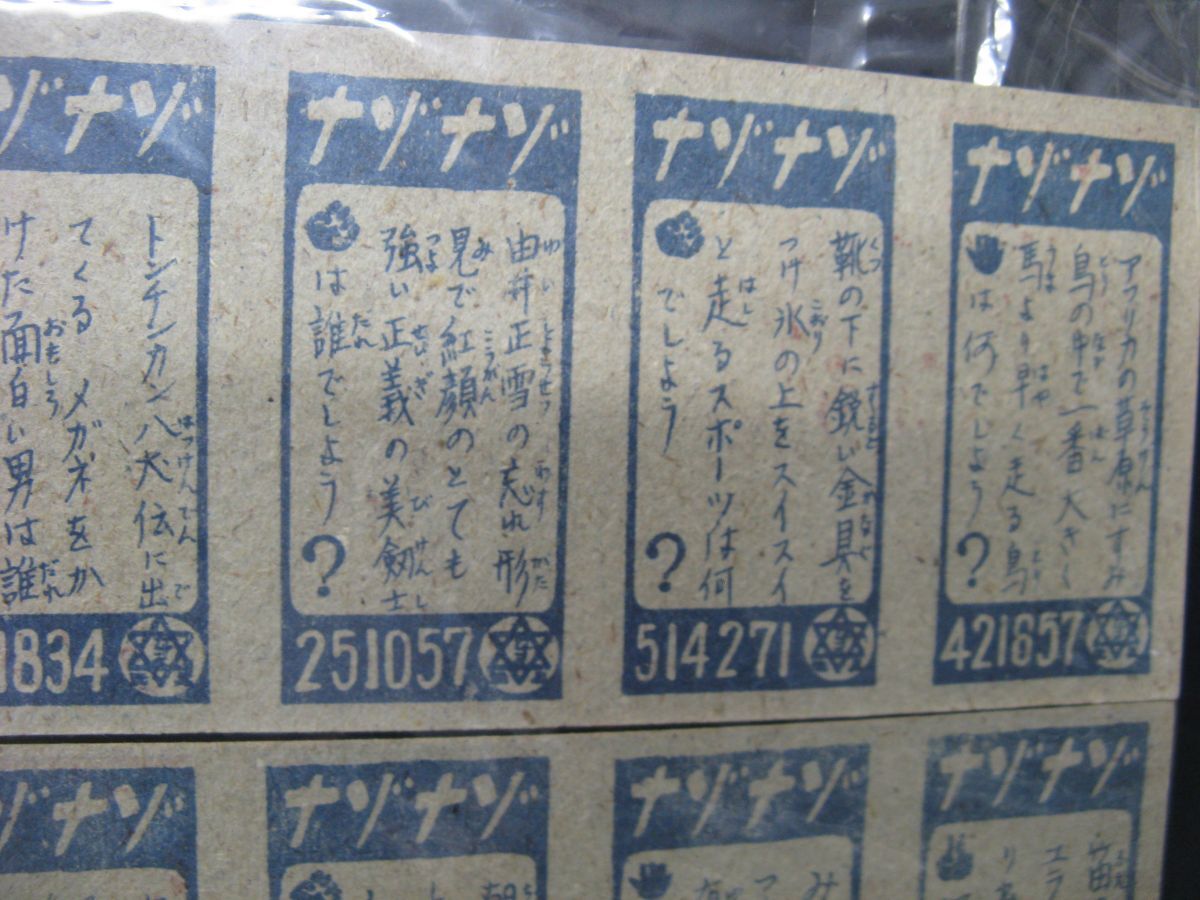 ナゾナゾ
アフリカの草原にすみ
鳥の中で一番大きく
馬より早く走る鳥
は何でしよう?
421657
ナゾナゾ
靴の下に鋭い金具を
つけ氷の上をスイスイ
と走るスポーツは何
でしよう?
514271
ナゾナゾ
由井正雪の忘れ形
見で紅顔のとても
強い正義の美剱士
は誰でしよう?
251057
ゾナゾ
トンチンカン八犬伝に出
てくる メガネをか
けた面白い男は誰
1834
ナゾナゾ
ナゾナゾ
ナゾナゾ
ゾナゾ